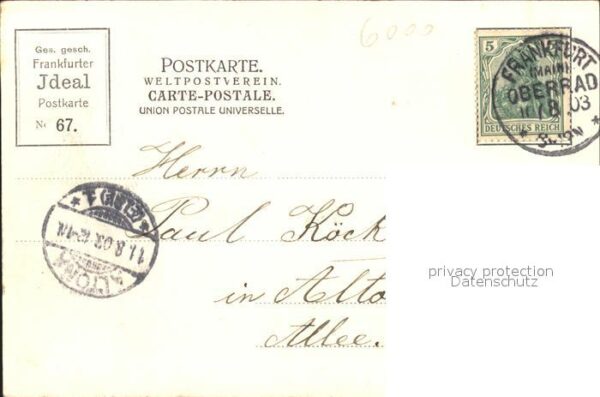 Ges. gesch.
Frankfurter
Jdeal
Postkarte
No 67.
6000
POSTKARTE.
WELTPOSTVEREIN.
CARTE-POSTALE.
UNION POSTALE UNIVERSELLE.
5
DEUTSCHES REICH
FRANKFURT
(MAIN)
OBERRAD
8.03
Herrn
Paul Köck
in Alto
Allee.
ALTONA
11.8.03
(ELBE) 1
privacy protection
Datenschutz